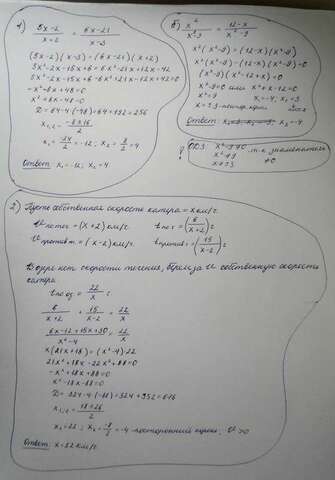 1) (5x-2)/(x+2) = (6x-21)/(x-3)
(5x-2)(x-3) = (6x-21)(x+2)
5x²-2x-15x+6 = 6x²-21x+12x-42
5x²-2x-15x+6-6x²+21x-12x+42=0
-x²-8x+48=0
x²+8x-48=0
D=64-4(-48)=64+192=256
x₁,₂ = (-8±16)/2
x₁ = -24/2 = -12; x₂ = 8/2 = 4
Ответ: x₁=-12; x₂=4
б) x²/(x²-9) = (12-x)/(x²-9)
x²(x²-9) = (12-x)(x²-9)
(x²-9)(x²-12+x)=0
x²-9=0 или x²+x-12=0
x²=9 x₁=-4; x₂=3
x=±3
Ответ: x₂=-4
ОДЗ x²-9≠0 т.к знаменатель
x²≠9 ≠0
x≠±3
2) Пусть собственная скорость катера = x км/ч
V по теч = (x+2) км/ч t по т = (6/(x+2)) ч
V против т = (x-2) км/ч t против т = (15/(x-2)) ч
В озере нет скорости течения, берем за V собственную скорость
катера
t по оз = 22/x
6/(x+2) + 15/(x-2) = 22/x
(6x-12+15x+30)/(x²-4) = 22/x
x(21x+18) = (x²-4)22
21x²+18x-22x²+88=0
-x²+18x+88=0
x²-18x-88=0
x₁,₂ = (18±26)/2
x₁=22; x₂ = -8/2 = -4 - посторонний корень, V>0
Ответ: x=22 км/ч